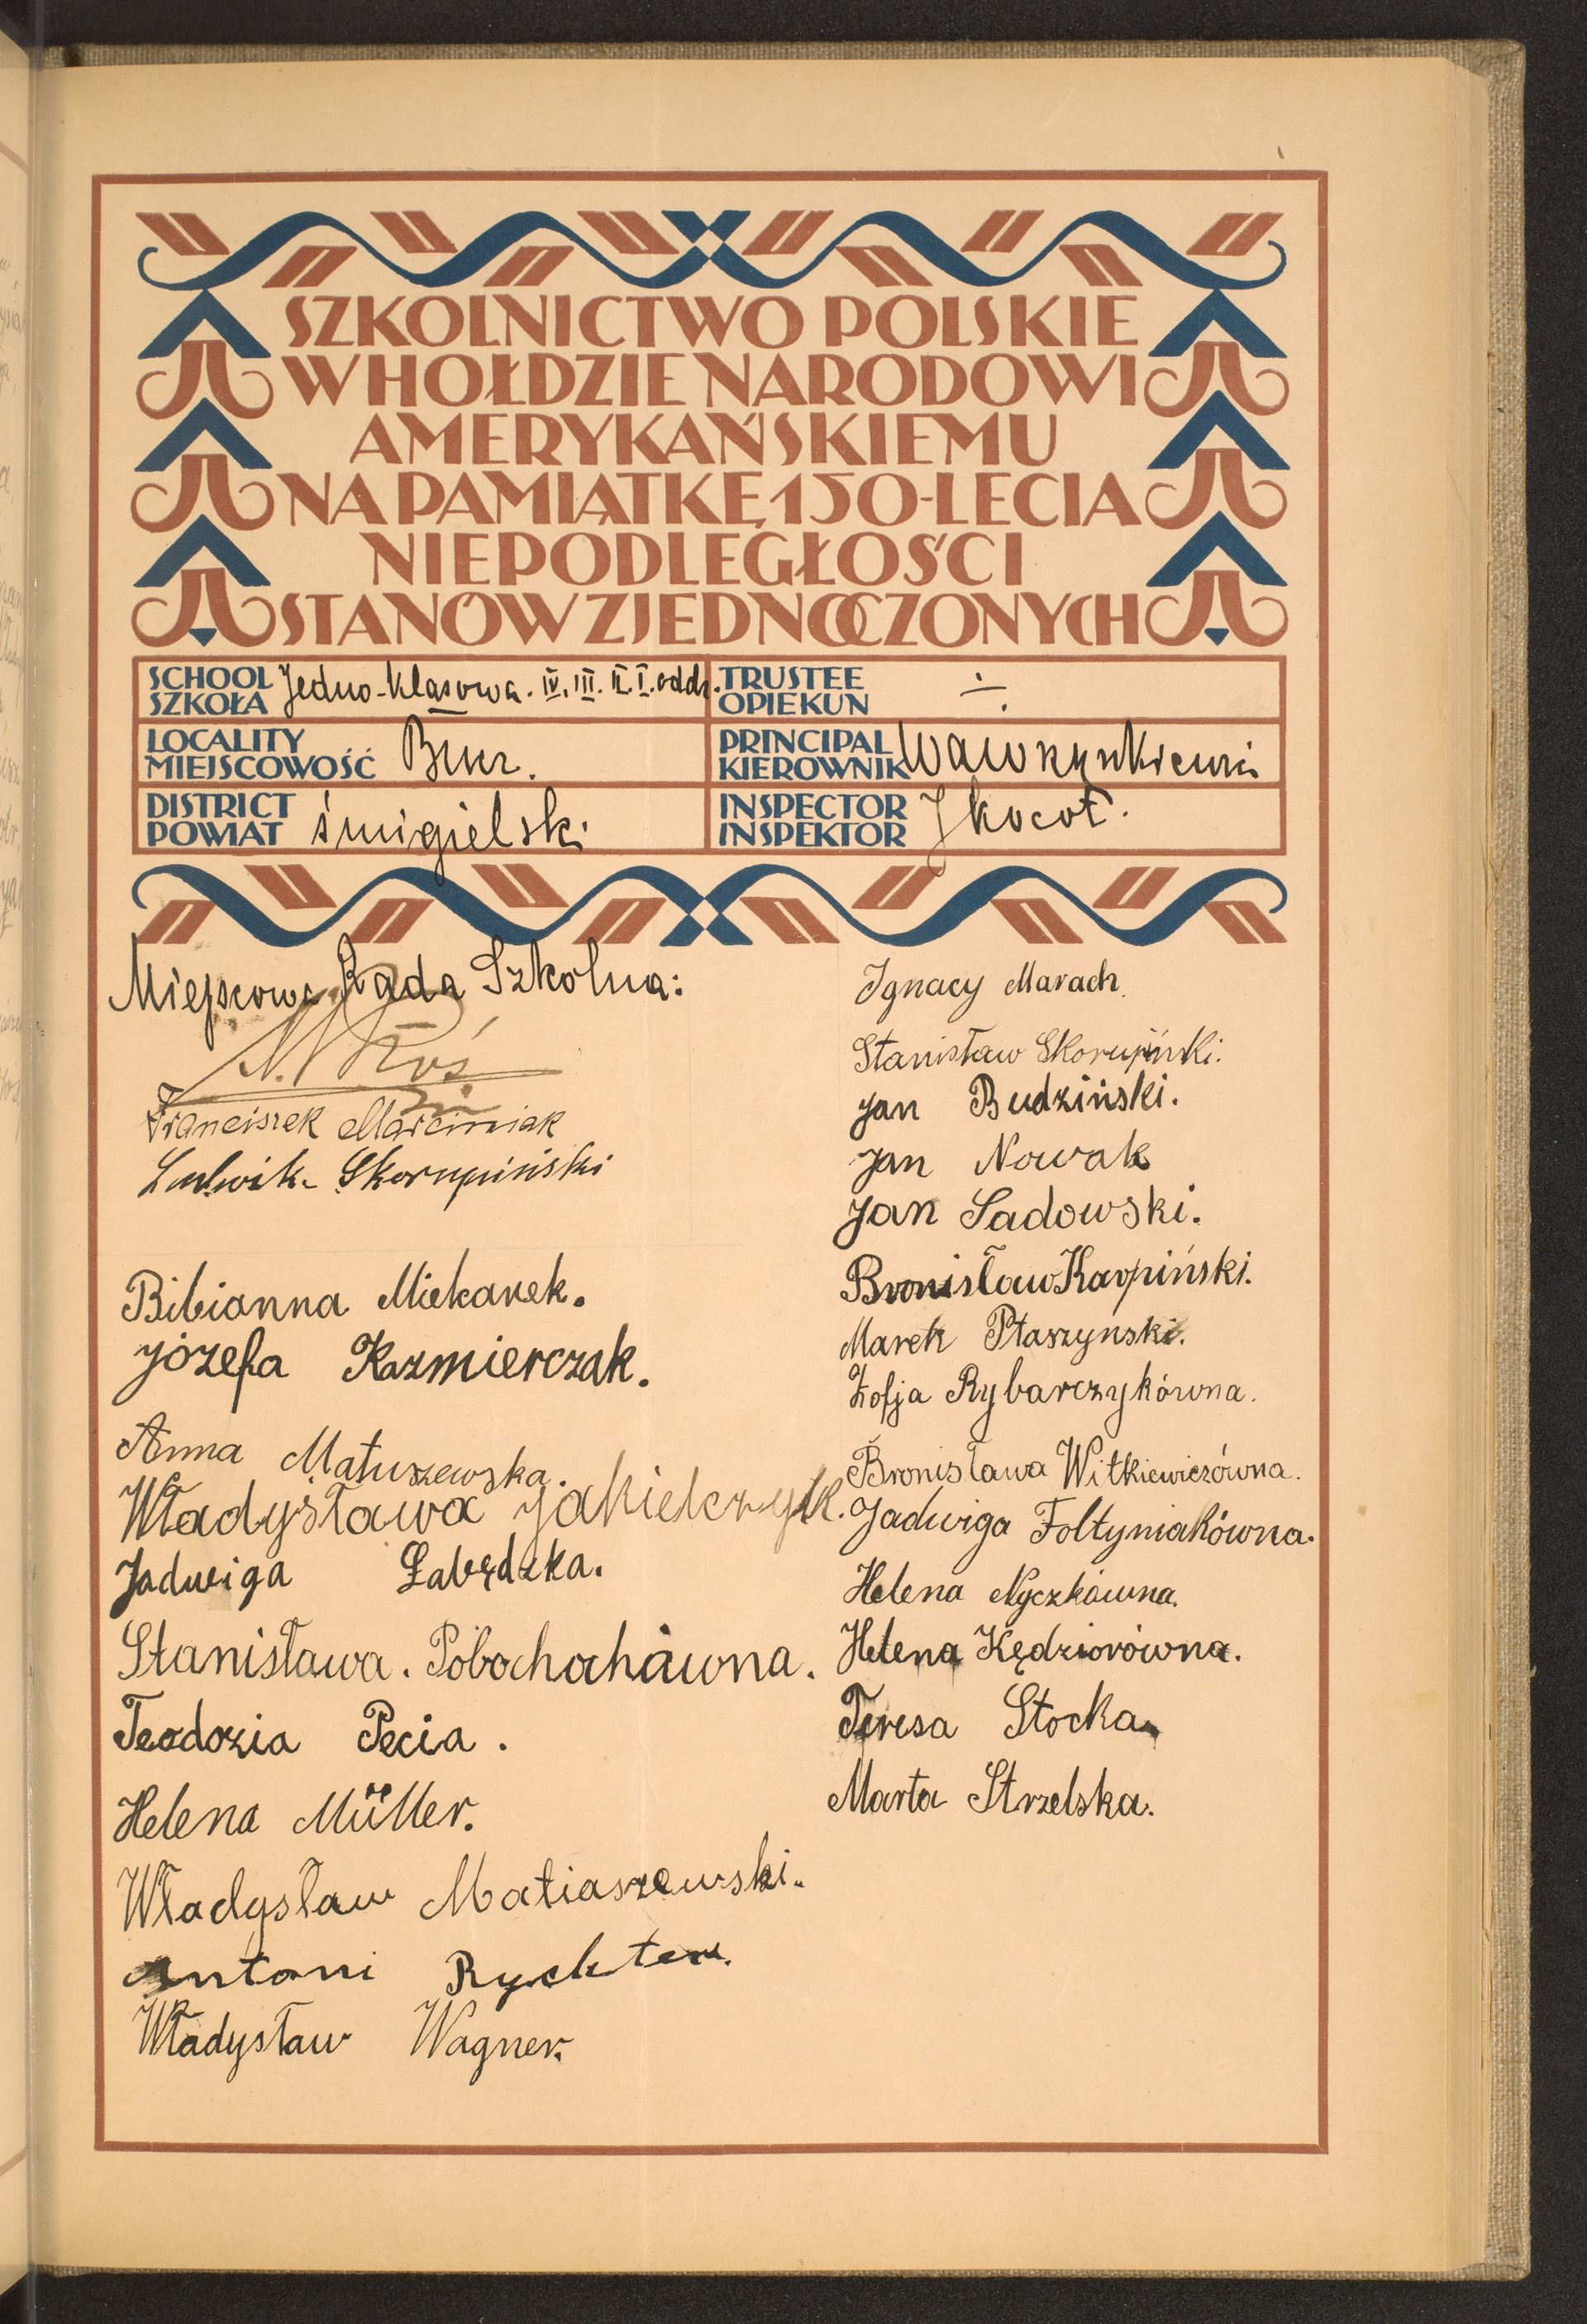 SZKOLNICTWO POLSKIE
W HOŁDZIE NARODOWI
AMERYKAŃSKIEMU
NA PAMIĄTKĘ 150-LECIA
NIEPODLEGŁOŚCI
STANÓW ZJEDNOCZONYCH
SCHOOL
SZKOŁA
Jedno-klasowa. IV. III. II. I. oddz.
TRUSTEE
OPIEKUN
LOCALITY
MIEJSCOWOŚĆ
PRINCIPAL
KIEROWNIK
DISTRICT
POWIAT
śmigielski
INSPECTOR
INSPEKTOR
J Kocot.
Miejscowa Rada Szkolna:
Franciszek Marciniak
Ludwik Skorupiński
Bibianna Miekarek.
Józefa Kazmierczak.
Anna Matuszewska.
Władysława Jakielczyk.
Jadwiga Łabędzka.
Stanisława. Pobochohówna.
Teodozia Pecia.
Helena Müller.
Władysław Matiaszewski.
Antoni Rychter.
Władysław Wagner.
Ignacy Marach.
Stanisław Skorupiński.
Jan Budziński.
Jan Nowak
Jan Sadowski.
Bronisław Karpiński.
Marek Ptaszynski.
Zofja Rybarczykówna.
Bronisława Witkiewiczówna.
Jadwiga Foltyniakówna.
Helena Nyczkówna.
Helena Kędziorówna.
Teresa Stocka.
Marta Strzelska.